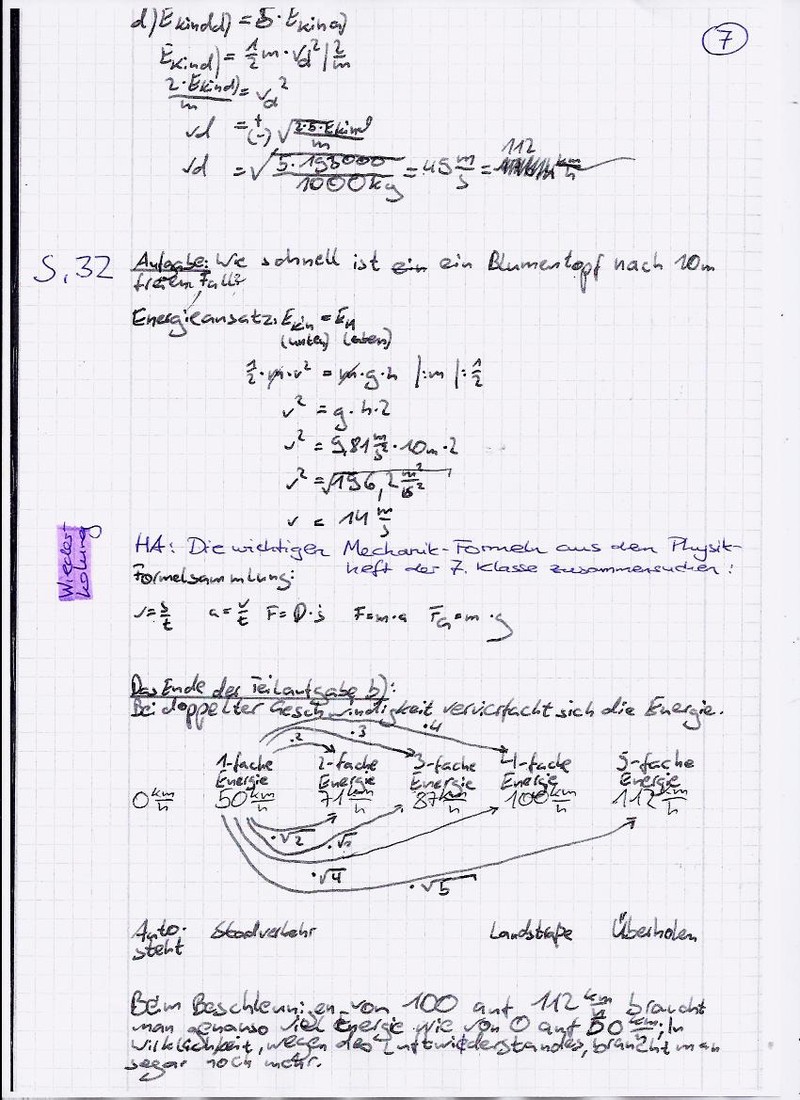 7
d) E kin d) = 5 · E kin a)
E kin d) = 1/2 m · vd² | 2/m
2·E kin d)/m = vd²
vd = +(-) √(2·5·E kin d/m)
vd = √(5·193000/1000kg) = 45 m/s = 112 km/h
S, 32
Aufgabe: Wie schnell ist ein ein Blumentopf nach 10m
freiem Fall?
Energieansatz: E kin = E H
(unten) (oben)
1/2 · m · v² = m · g · h |:m |:1/2
v² = g · h · 2
v² = 9,81 m/s² · 10m · 2
v² = √196,2 m²/s²
v = 14 m/s
Wiederholung
HA: Die wichtigen Mechanik-Formeln aus dem Physik-
heft der 7. Klasse zusammensuchen!
Formelsammlung:
v=s/t a=v/t F=D·s F=m·a F G=m·g
Das Ende der Teilaufgabe b):
Bei doppelter Geschwindigkeit vervierfacht sich die Energie.
·2 ·3 ·4
1-fache 2-fache 3-fache 4-fache 5-fache
Energie Energie Energie Energie Energie
0 km/h 50 km/h 71 km/h 87 km/h 100 km/h 112 km/h
·√2 ·√3
·√4 ·√5
Auto- Stadverkehr Landstraße Überholen
steht
Beim Beschleunigen von 100 auf 112 km/h braucht
man genauso viel Energie wie von 0 auf 50 km/h; In
wirklichkeit, wegen des Luftwiederstandes, braucht man
sogar noch mehr.